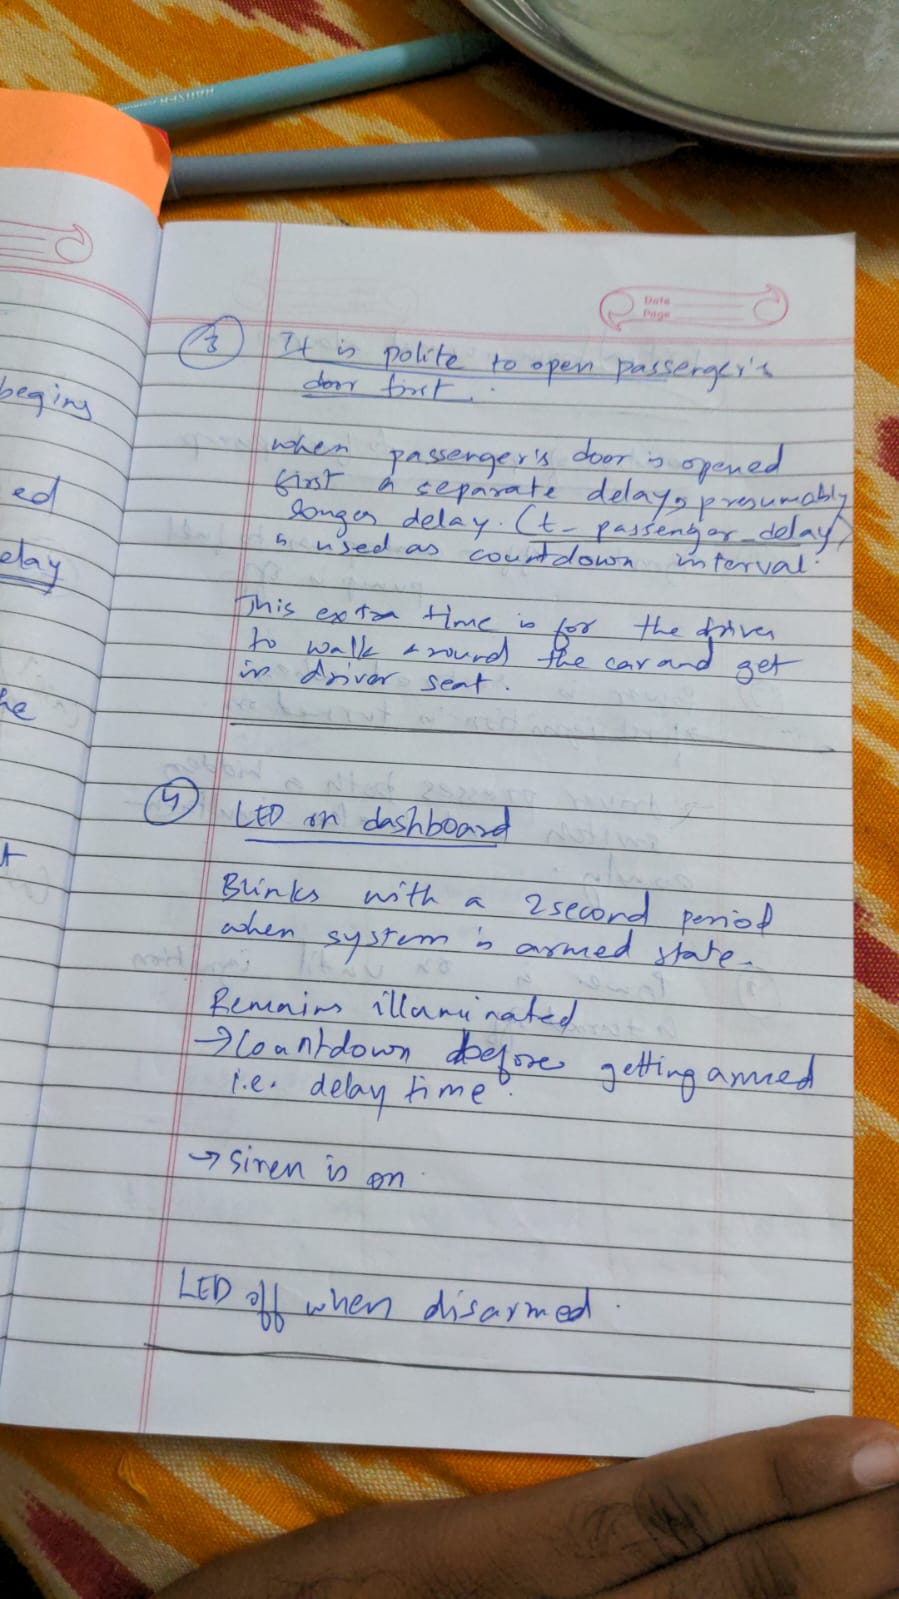 HAUSER
begins
ed
elay
he
t
Date
Page
3 It is polite to open passenger's
door first.
when passenger's door is opened
first a separate delay, presumably
longer delay. (t_passenger_delay)
is used as countdown interval.
This extra time is for the driver
to walk around the car and get
in driver seat.
4 LED on dashboard
Blinks with a 2 second period
when system is armed state.
Remains illuminated
→ Countdown before getting armed
i.e. delay time.
→ siren is on.
LED off when disarmed.